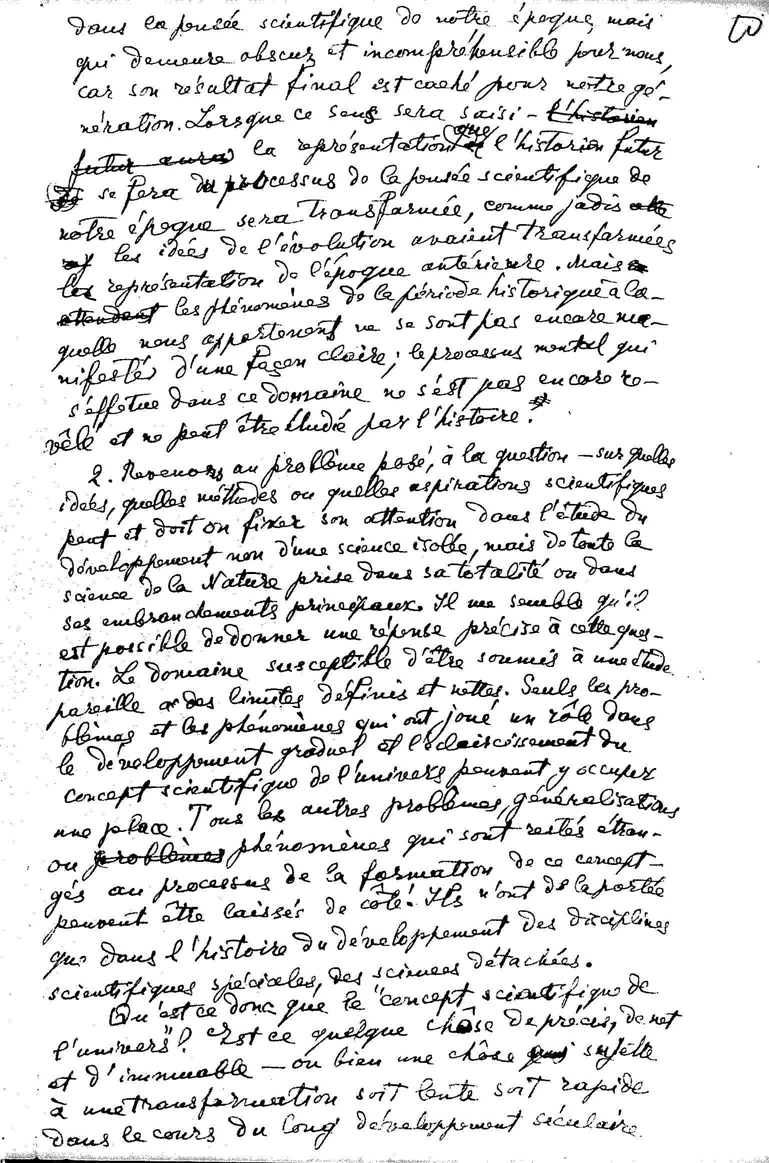 dans la pensée scientifique de notre époque, mais
qui demeure obscur et incompréhensible pour nous,
car son résultat final est caché pour notre gé-
nération. Lorsque ce sens sera saisi - l'historien
futur aura la représentation que l'historien futur
se fera du processus de la pensée scientifique de
notre époque sera transformée, comme jadis
les idées de l'évolution avaient transformées
les représentation de l'époque antérieure. Mais
attendent les phénomènes de la période historique à la-
quelle nous appartenons ne se sont pas encore ma-
nifestés d'une façon claire; le processus mental qui
s'éffetue dans ce domaine ne s'ést pas encore ré-
vêlé et ne peut être étudié par l'histoire.
2. Revenons au problème posé, à la question - sur quelles
idées, quelles méthodes ou quelles aspirations scientifiques
peut et doit on fixer son attention dans l'étude du
développement non d'une science isolée, mais de toute la
science de la Nature prise dans sa totalité ou dans
ses embranchements principaux. Il me semble qu'il
est possible de donner une réponse précise à cette ques-
tion. Le domaine susceptible d'être soumis à une étude
pareille a des limites définis et nettes. Seuls les pro-
blèmes et les phénomènes qui ont joué un rôle dans
le développement graduel et l'éclaircissement du
concept scientifique de l'univers peuvent y occuper
une place. Tous les autres problèmes, généralisations
ou problèmes phénomènes qui sont restés étran-
gés au processus de la formation de ce concept -
peuvent être laissés de côté. Ils n'ont de la portée
que dans l'histoire du développement des disciplines
scientifiques spéciales, des sciences détachées.
Qu'est ce donc que le "concept scientifique de
l'univers"? Est ce quelque chôse de précis, de net
et d'immuable - ou bien une chôse sujette
à une transformation soit lente soit rapide
dans le cours du long développement séculaire